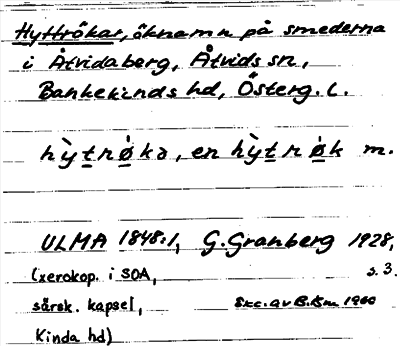 Hyttrökar, öknamn på smederna
i Åtvidaberg, Åtvids sn,
Bankekinds hd, Österg. l.
hỳtrøka, en hỳtrøk m.
ULMA 1848:1, G. Granberg 1928,
(xerokop. i SOA, s. 3.
särsk. kapsel, Exc. av B. Bm 1960
Kinda hd)